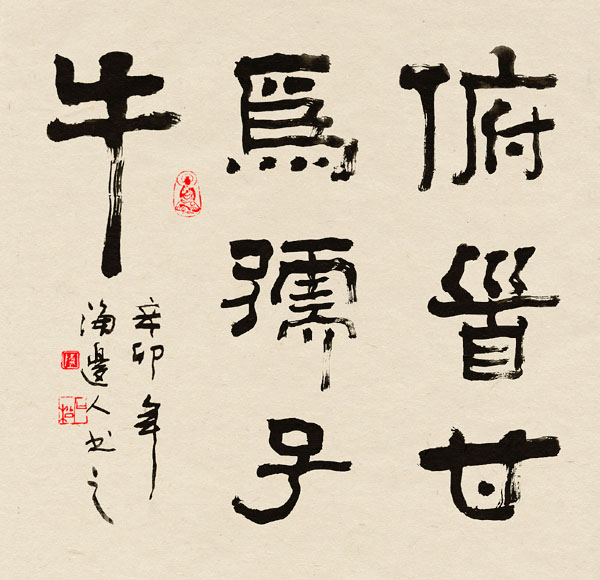 俯首甘
為孺子
牛
辛卯年
海邊人书之